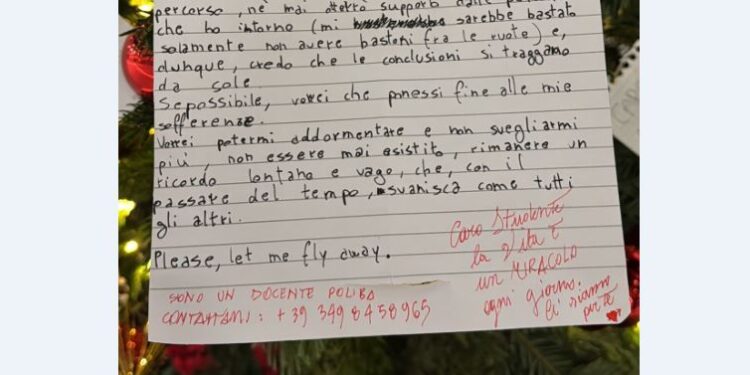 percorso, né mai otterrò supporto dalle
che ho intorno (mi sarebbe bastato
solamente non avere bastoni fra le ruote) e,
dunque, credo che le conclusioni si traggano
da sole
Sepossibile, vorrei che ponessi fine alle mie
sofferenze.
Vorrei potermi addormentare e non svegliarmi
più, non essere mai esistito, rimanere un
ricordo lontano e vago, che, con il
passare del tempo, svanisca come tutti
gli altri.
Please, let me fly away.
Caro Studente
la Vita È
un MIRACOLO
ogni giorno.
Ci siamo
per te
SONO UN DOCENTE POLIBA
CONTATTAMI: +39 3498458965